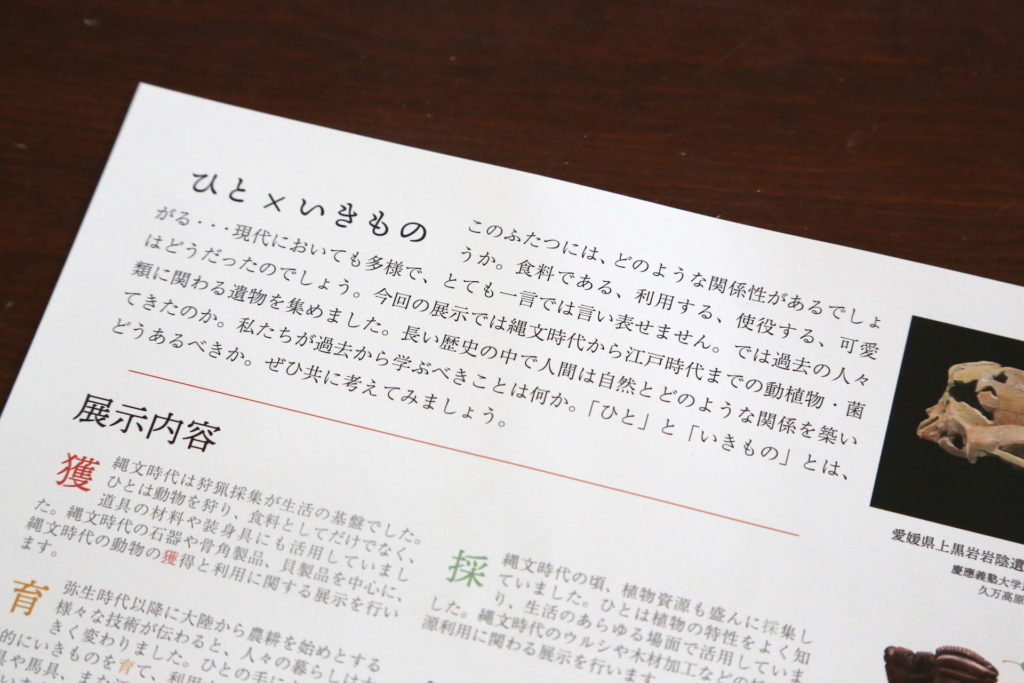 ひと×いきもの
このふたつには、どのような関係性があるでしょ
うか。食料である、利用する、使役する、可愛
がる・・・現代においても多様で、とても一言では言い表せません。では過去の人々
はどうだったのでしょう。今回の展示では縄文時代から江戸時代までの動植物・菌
類に関わる遺物を集めました。長い歴史の中で人間は自然とどのような関係を築い
てきたのか。私たちが過去から学ぶべきことは何か。「ひと」と「いきもの」とは、
どうあるべきか。ぜひ共に考えてみましょう。
展示内容
獲
縄文時代は狩猟採集が生活の基盤でした。
ひとは動物を狩り、食料としてだけでなく、
道具の材料や装身具にも活用していまし
た。縄文時代の石器や骨角製品、貝製品を中心に、
縄文時代の動物の獲得と利用に関する展示を行い
ます。
育
弥生時代以降に大陸から農耕を始めとする
様々な技術が伝わると、人々の暮らしは大
きく変わりました。ひとの手に
的にいきものを育て、利用
や馬具、また
採
縄文時代の頃、植物資源も盛んに採集し
ていました。ひとは植物の特性をよく知
り、生活のあらゆる場面で活用していま
した。縄文時代のウルシや木材加工などの
源利用に関わる展示を行います。
愛媛県上黒岩岩陰遺
慶應義塾大学
久万高原